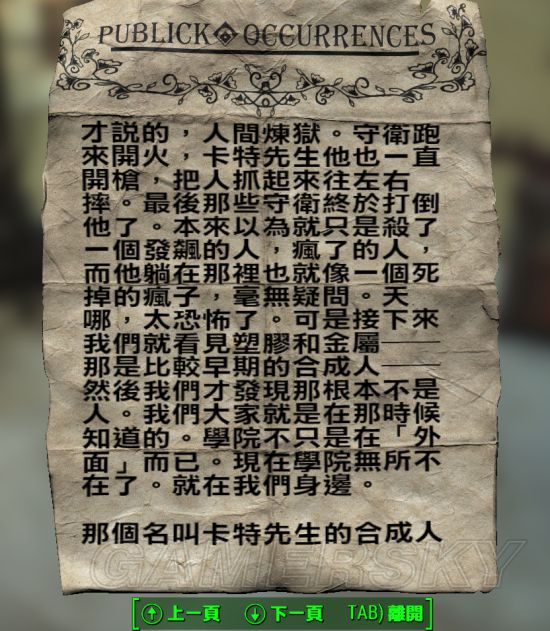 PUBLICK OCCURRENCES
才說的，人間煉獄。守衛跑
來開火，卡特先生他也一直
開槍，把人抓起來往左右
摔。最後那些守衛終於打倒
他了。本來以為就只是殺了
一個發飆的人，瘋了的人，
而他躺在那裡也就像一個死
掉的瘋子，毫無疑問。天
哪，太恐怖了。可是接下來
我們就看見塑膠和金屬——
那是比較早期的合成人——
然後我們才發現那根本不是
人。我們大家就是在那時候
知道的。學院不只是在「外
面」而已。現在學院無所不
在了。就在我們身邊。
那個名叫卡特先生的合成人
GAMERSKY
上一頁 下一頁 TAB) 離開